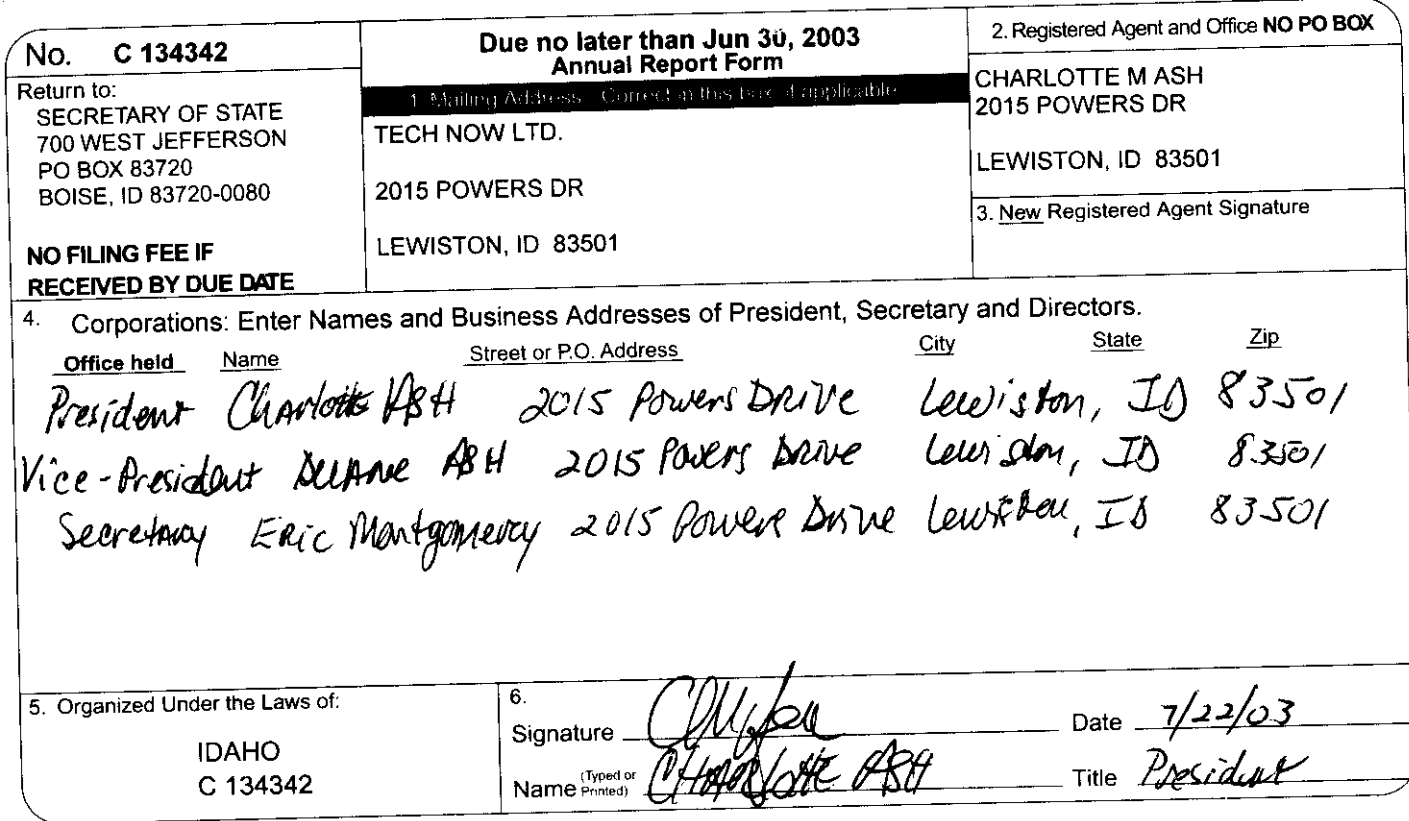 No. C 134342
Return to:
SECRETARY OF STATE
700 WEST JEFFERSON
PO BOX 83720
BOISE, ID 83720-0080
NO FILING FEE IF
RECEIVED BY DUE DATE
Due no later than Jun 30, 2003
Annual Report Form
1. Mailing Address. Correct in this box if applicable
TECH NOW LTD.
2015 POWERS DR
LEWISTON, ID 83501
2. Registered Agent and Office NO PO BOX
CHARLOTTE M ASH
2015 POWERS DR
LEWISTON, ID 83501
3. New Registered Agent Signature
4. Corporations: Enter Names and Business Addresses of President, Secretary and Directors.
Office held Name Street or P.O. Address City State Zip
President Charlotte ASH 2015 Powers Drive Lewiston, ID 83501
Vice-President ASH 2015 Powers Drive Lewiston, ID 83501
Secretary Eric Montgomery 2015 Powers Drive Lewiston, ID 83501
5. Organized Under the Laws of:
IDAHO
C 134342
6.
Signature
Date 7/22/03
Name (Typed or Printed) CHARLOTTE ASH
Title President